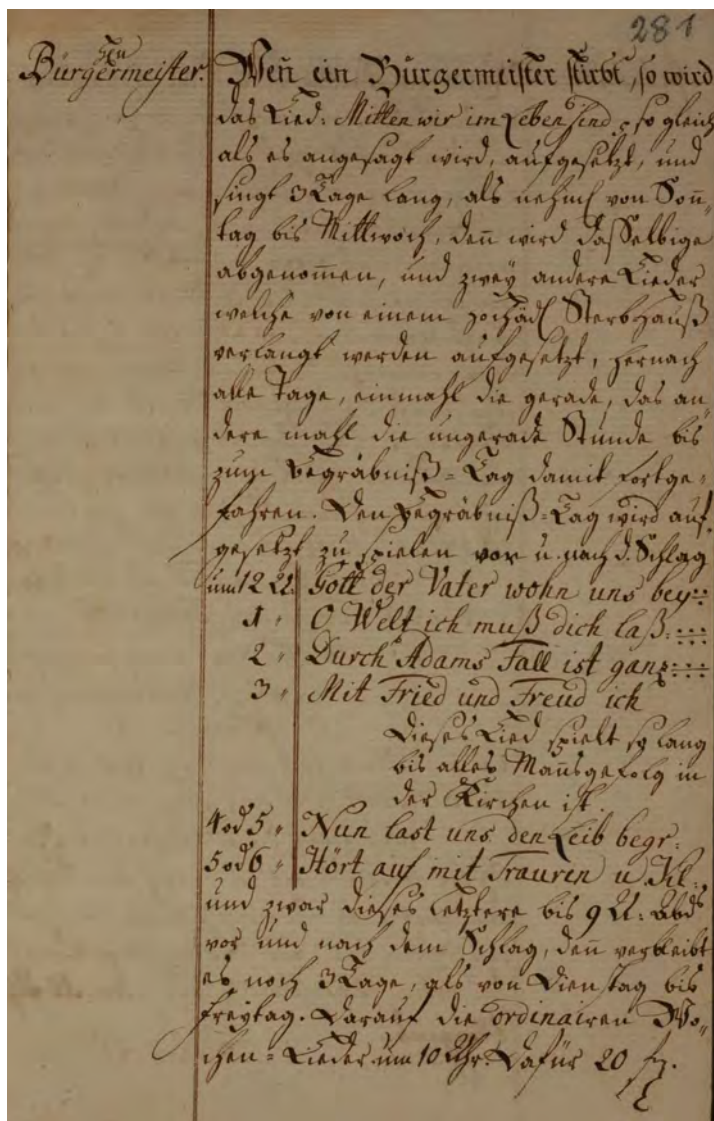 281
Hen
Bürgermeister.
Weñ ein Bürgermeister stirbt, so wird
das Lied: Mitten wir im Leben sind, so gleich
als es angesagt wird, aufgesetzt, und
singt 3 Tage lang, als nehml von Soñ„
tag bis Mittwoch, deñ wird dasselbige
abgenom̃en, und zweÿ andere Lieder
welche von einem Sterbhauß
verlangt werden aufgesetzt, hernach
alle Tage, einmahl die gerade, das an
dere mahl die ungerade Stunde bis
zum Begräbniß=Tag damit fortge„
fahren. Den Begräbniß=Tag wird auf„
gesetzt zu spielen vor u. nach d. Schlag
um 12 U. Gott der Vater wohn uns beÿ
1 „ O Welt ich muß dich laß.
2 „ Durch Adams Fall ist ganz
3 „ Mit Fried und Freud ich
Dieses Lied spielt so lang
bis alles Mañsgefolg in
der Kirchen ist.
4 od 5 „ Nun last uns den Leib begr:
5 od 6 „ Hört auf mit Trauren u Kl:
und zwar dieses Letztere bis 9 U: Abds
vor und nach dem Schlag, deñ verbleibt
es noch 3 Tage, als von Dienstag bis
Freÿtag. Darauf die ordinairen Wo„
chen=Lieder um 10 Uhr. Dafür 20